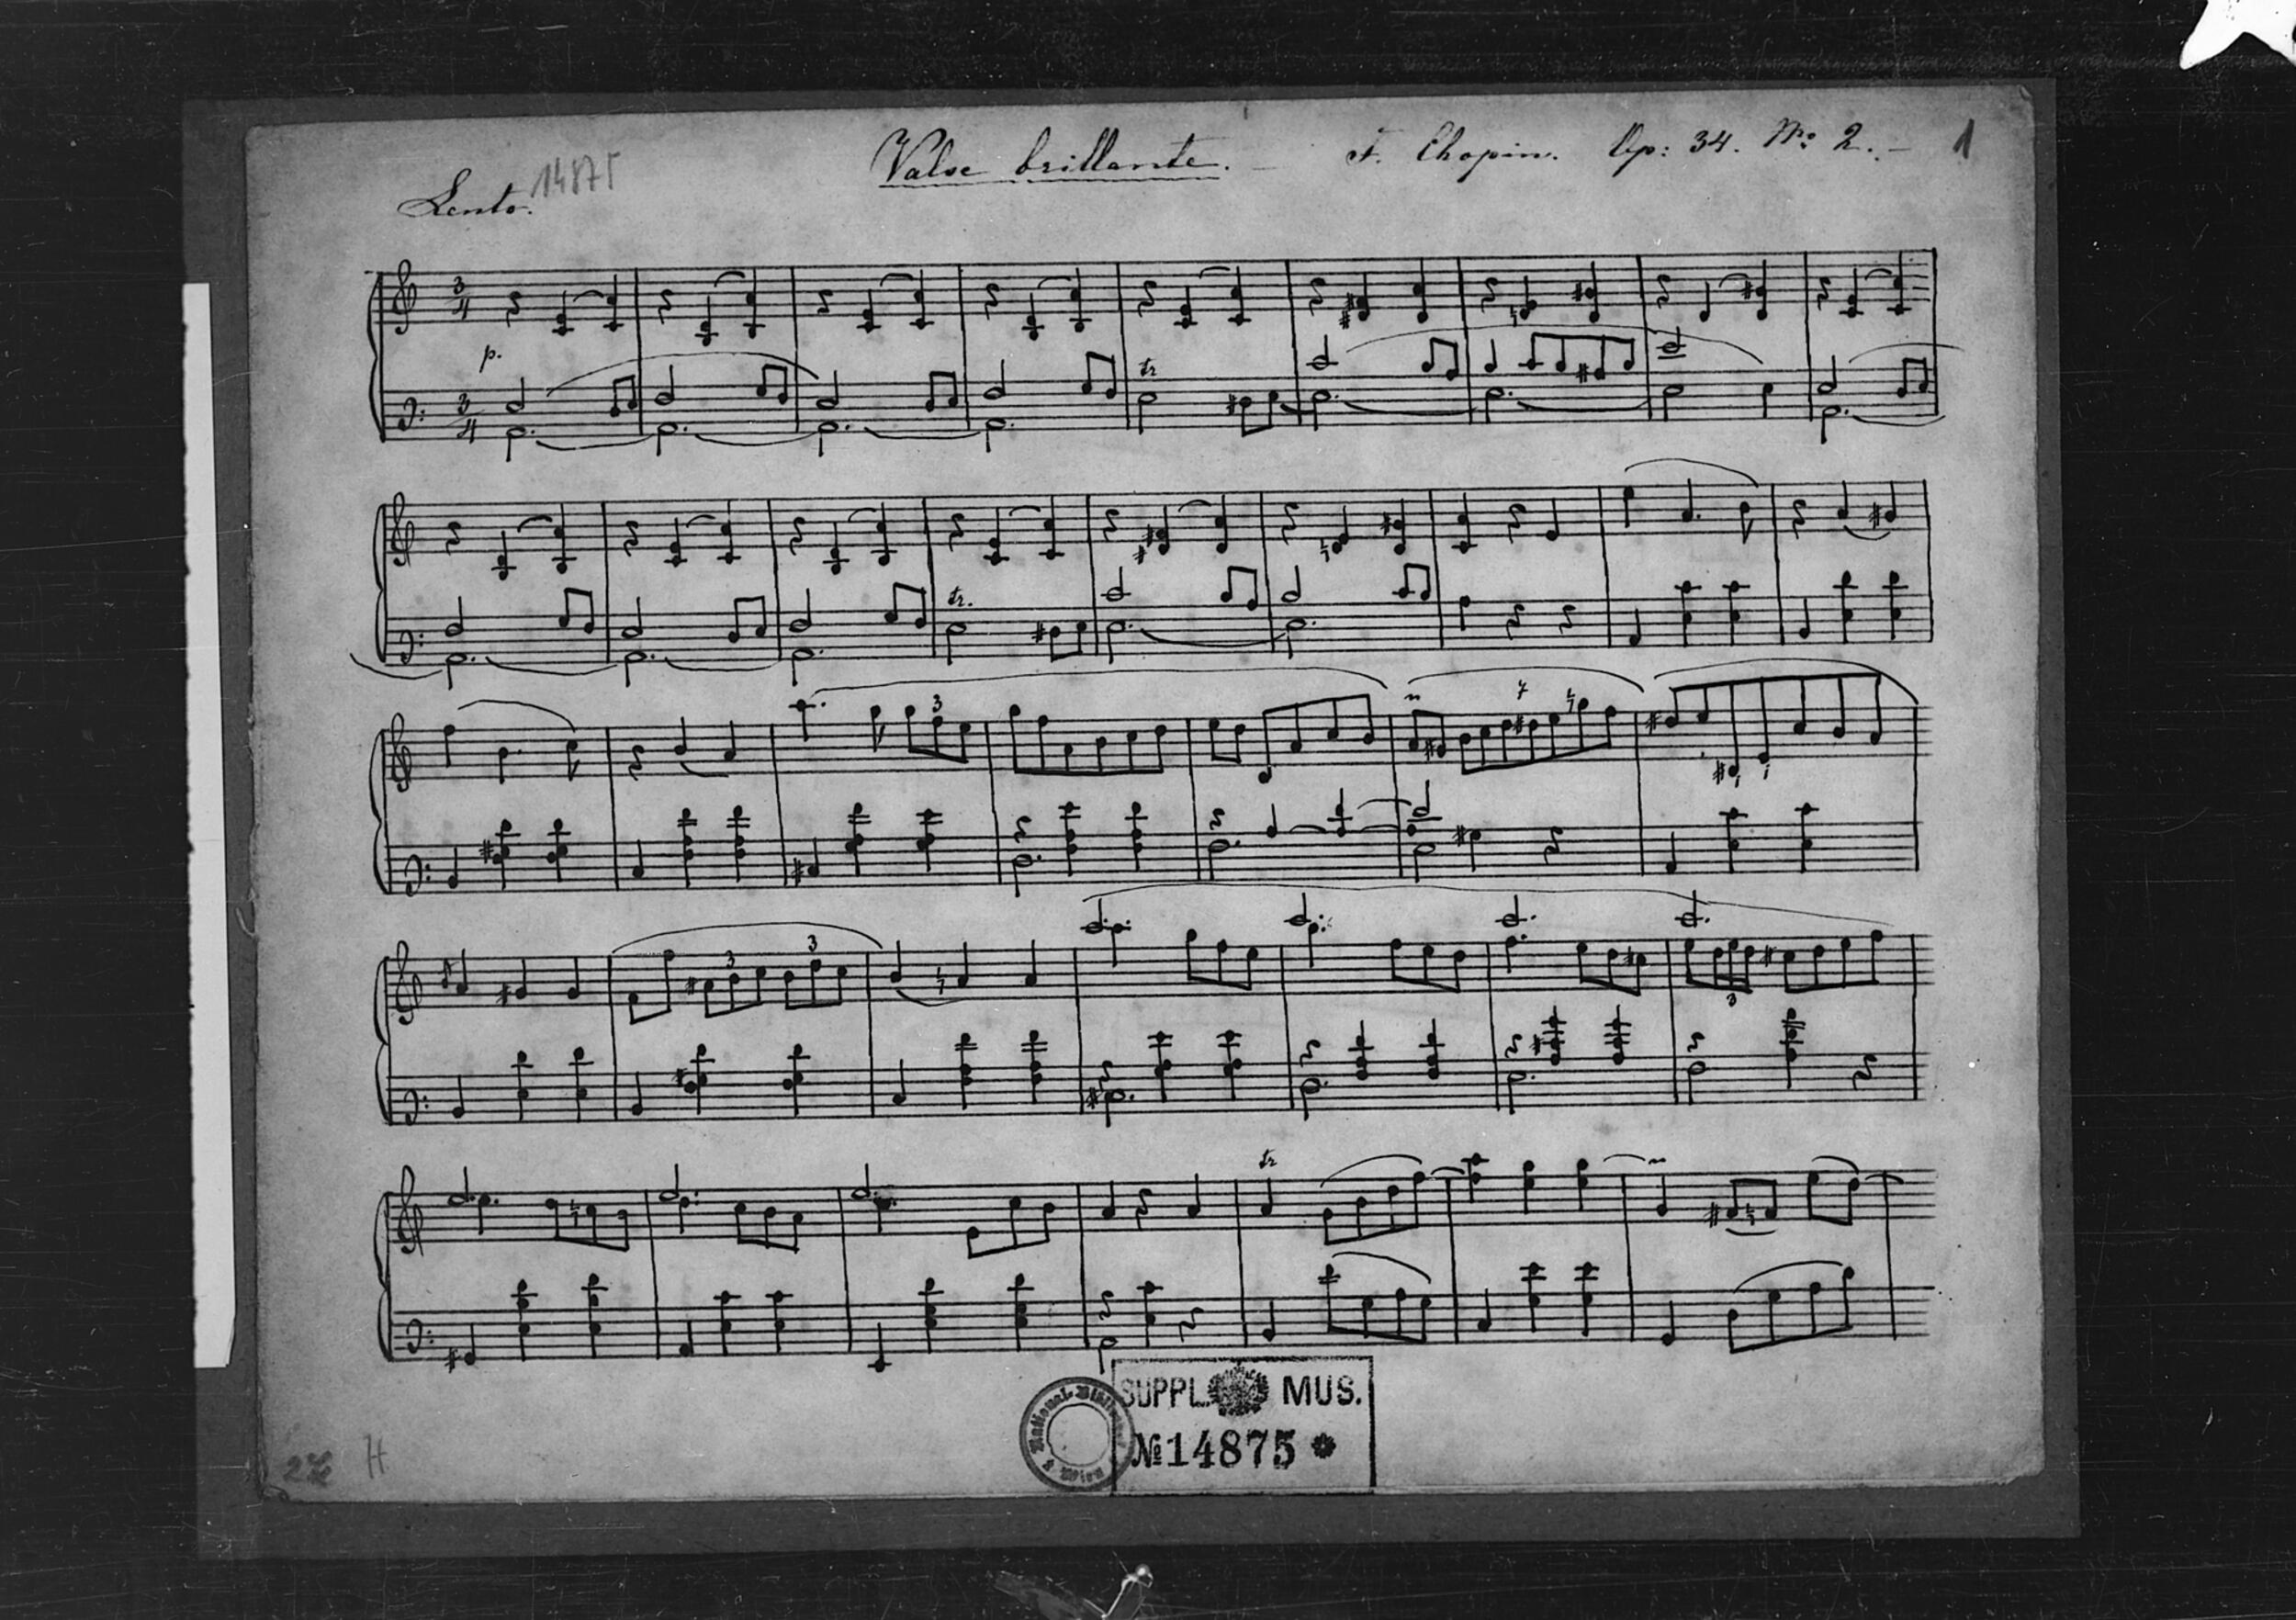 Valse brillante. - F. Chopin. Op: 34. No: 2. - 1
14875
Lento.
3 4
p.
3 4
tr
tr.
3
7
3 3
3
tr
SUPPL. MUS.
№ 14875 *
National-Bibliothek
Wien
H